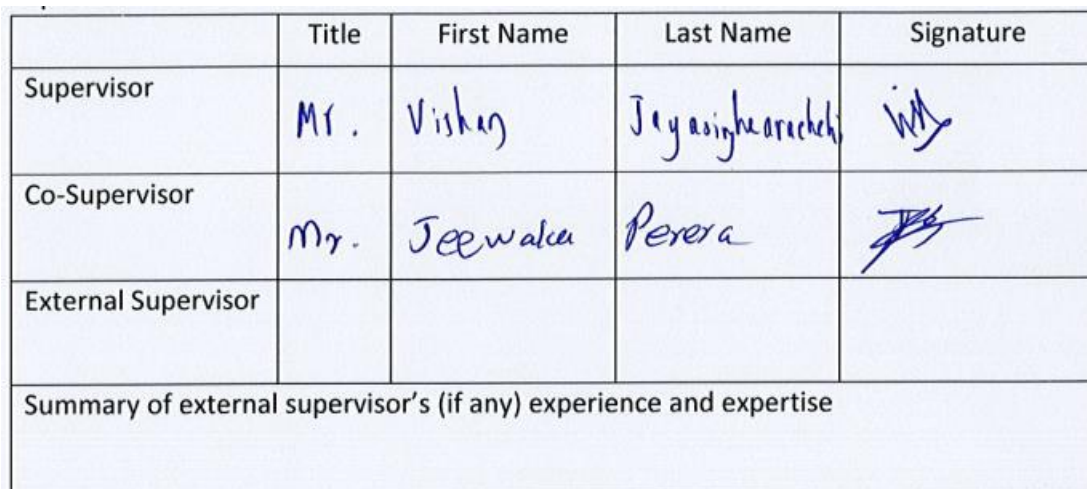 Title First Name Last Name Signature
Supervisor
Mr. Vishan Jayasinghearachchi
Co-Supervisor
Mr. Jeewaka Perera
External Supervisor
Summary of external supervisor's (if any) experience and expertise